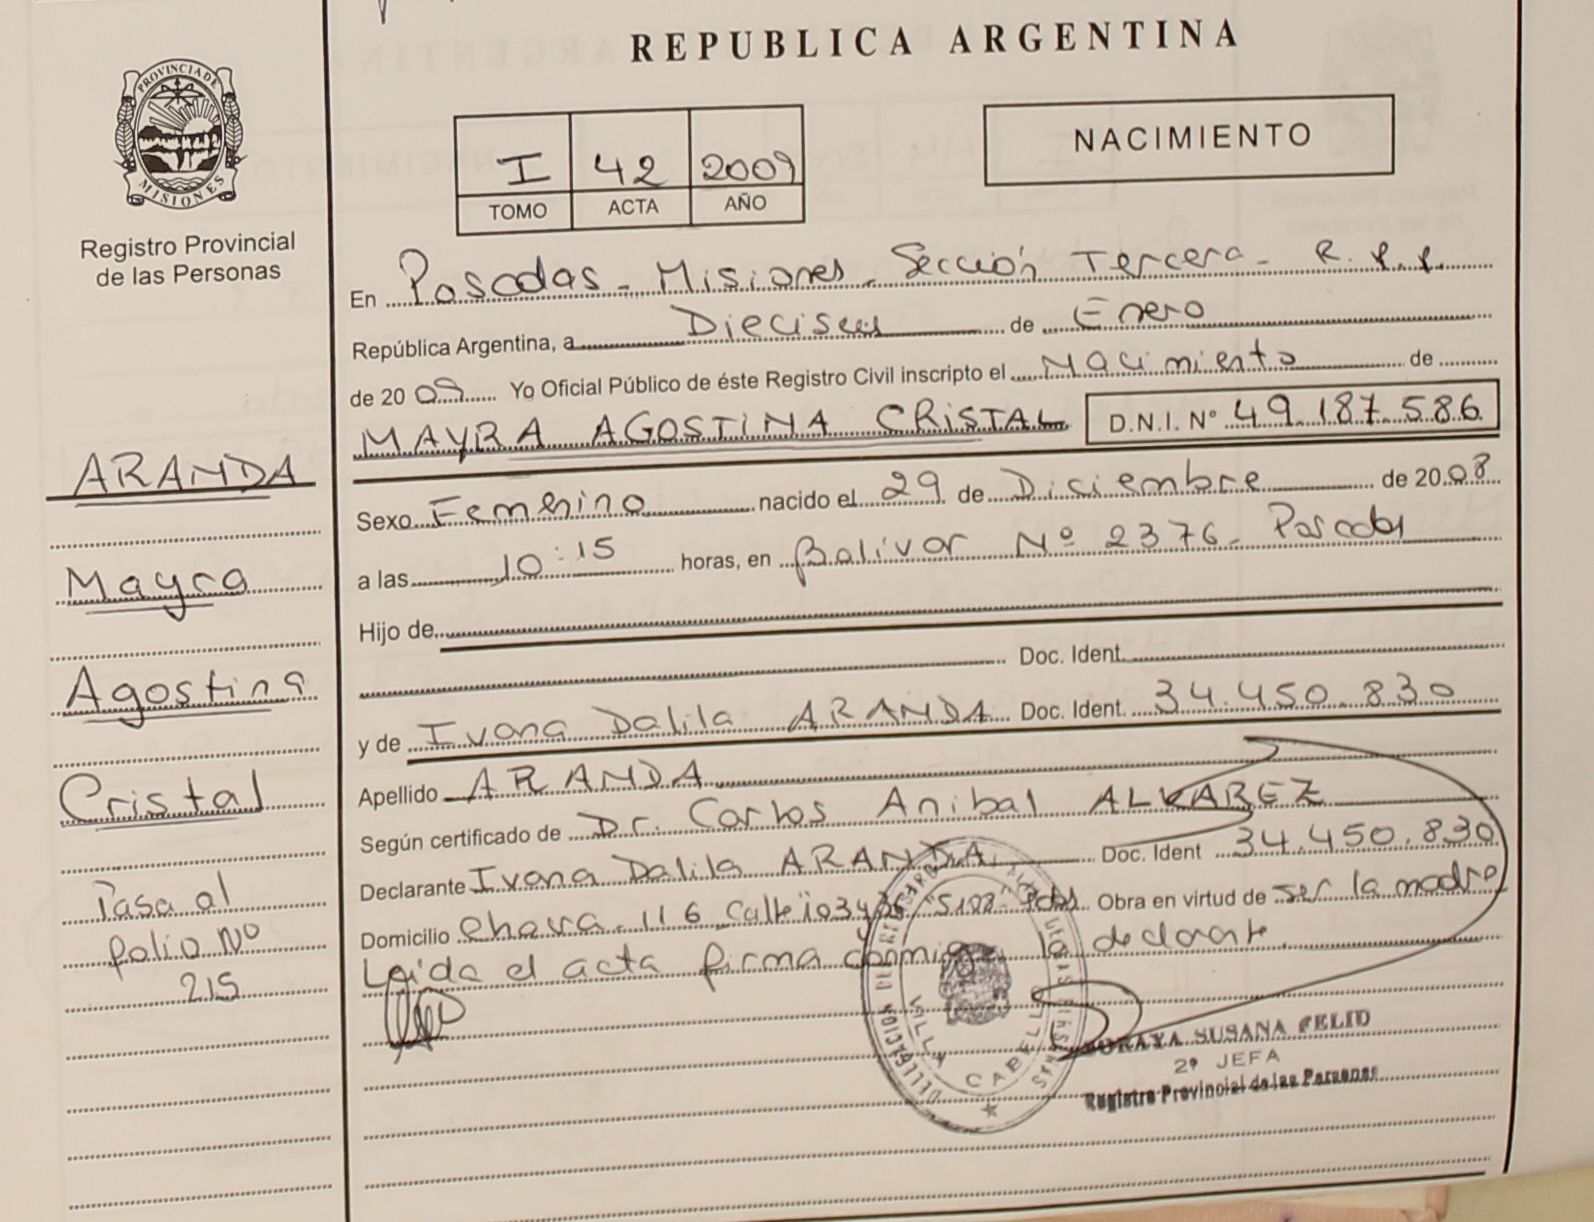 REPUBLICA ARGENTINA
PROVINCIA DE MISIONES
Registro Provincial
de las Personas
I 42 2009
TOMO ACTA AÑO
NACIMIENTO
En Posadas - Misiones - Sección Tercera - R.P.P.
República Argentina, a Dieciseis de Enero
de 2009 Yo Oficial Público de éste Registro Civil inscripto el Nacimiento de
MAYRA AGOSTINA CRISTAL D.N.I. Nº 49.187.586
Sexo Femenino nacido el 29 de Diciembre de 2008
a las 10:15 horas, en Bolivar Nº 2376 - Posadas
Hijo de
Doc. Ident.
y de Ivana Dalila ARANDA Doc. Ident. 34.450.830
Apellido ARANDA
Según certificado de Dr. Carlos Anibal ALVAREZ
Declarante Ivana Dalila ARANDA Doc. Ident 34.450.830
Domicilio Chacra - 116 Calle Pdas Obra en virtud de ser la madre
Leida el acta firma conmigo la declarante
ARANDA
Mayra
Agostina
Cristal
Pasa al
folio Nº
215
VILLA CABELLO
SORAYA SUSANA FELID
2ª JEFA
Registro Provincial de las Personas